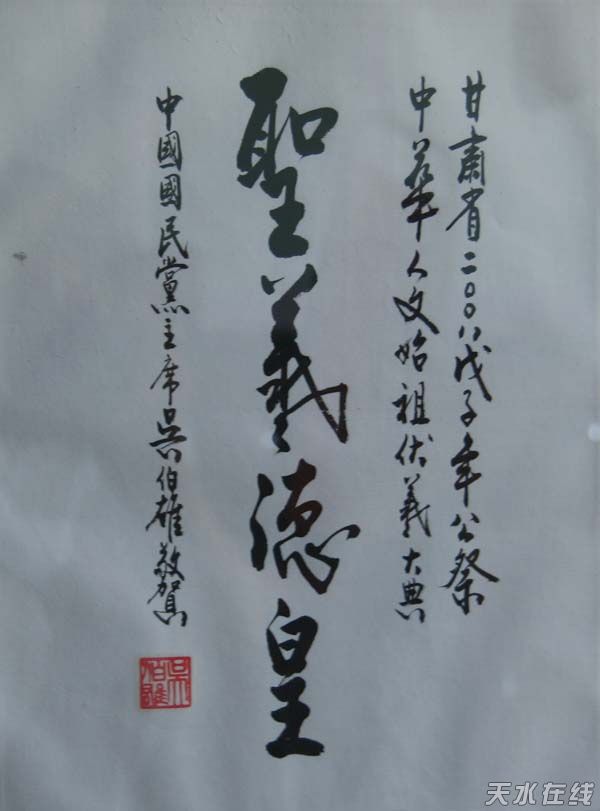 甘肅省二〇〇八戊子年公祭
中華人文始祖伏羲大典
聖羲德皇
中國國民黨主席吳伯雄敬賀
吳伯雄
天水在线